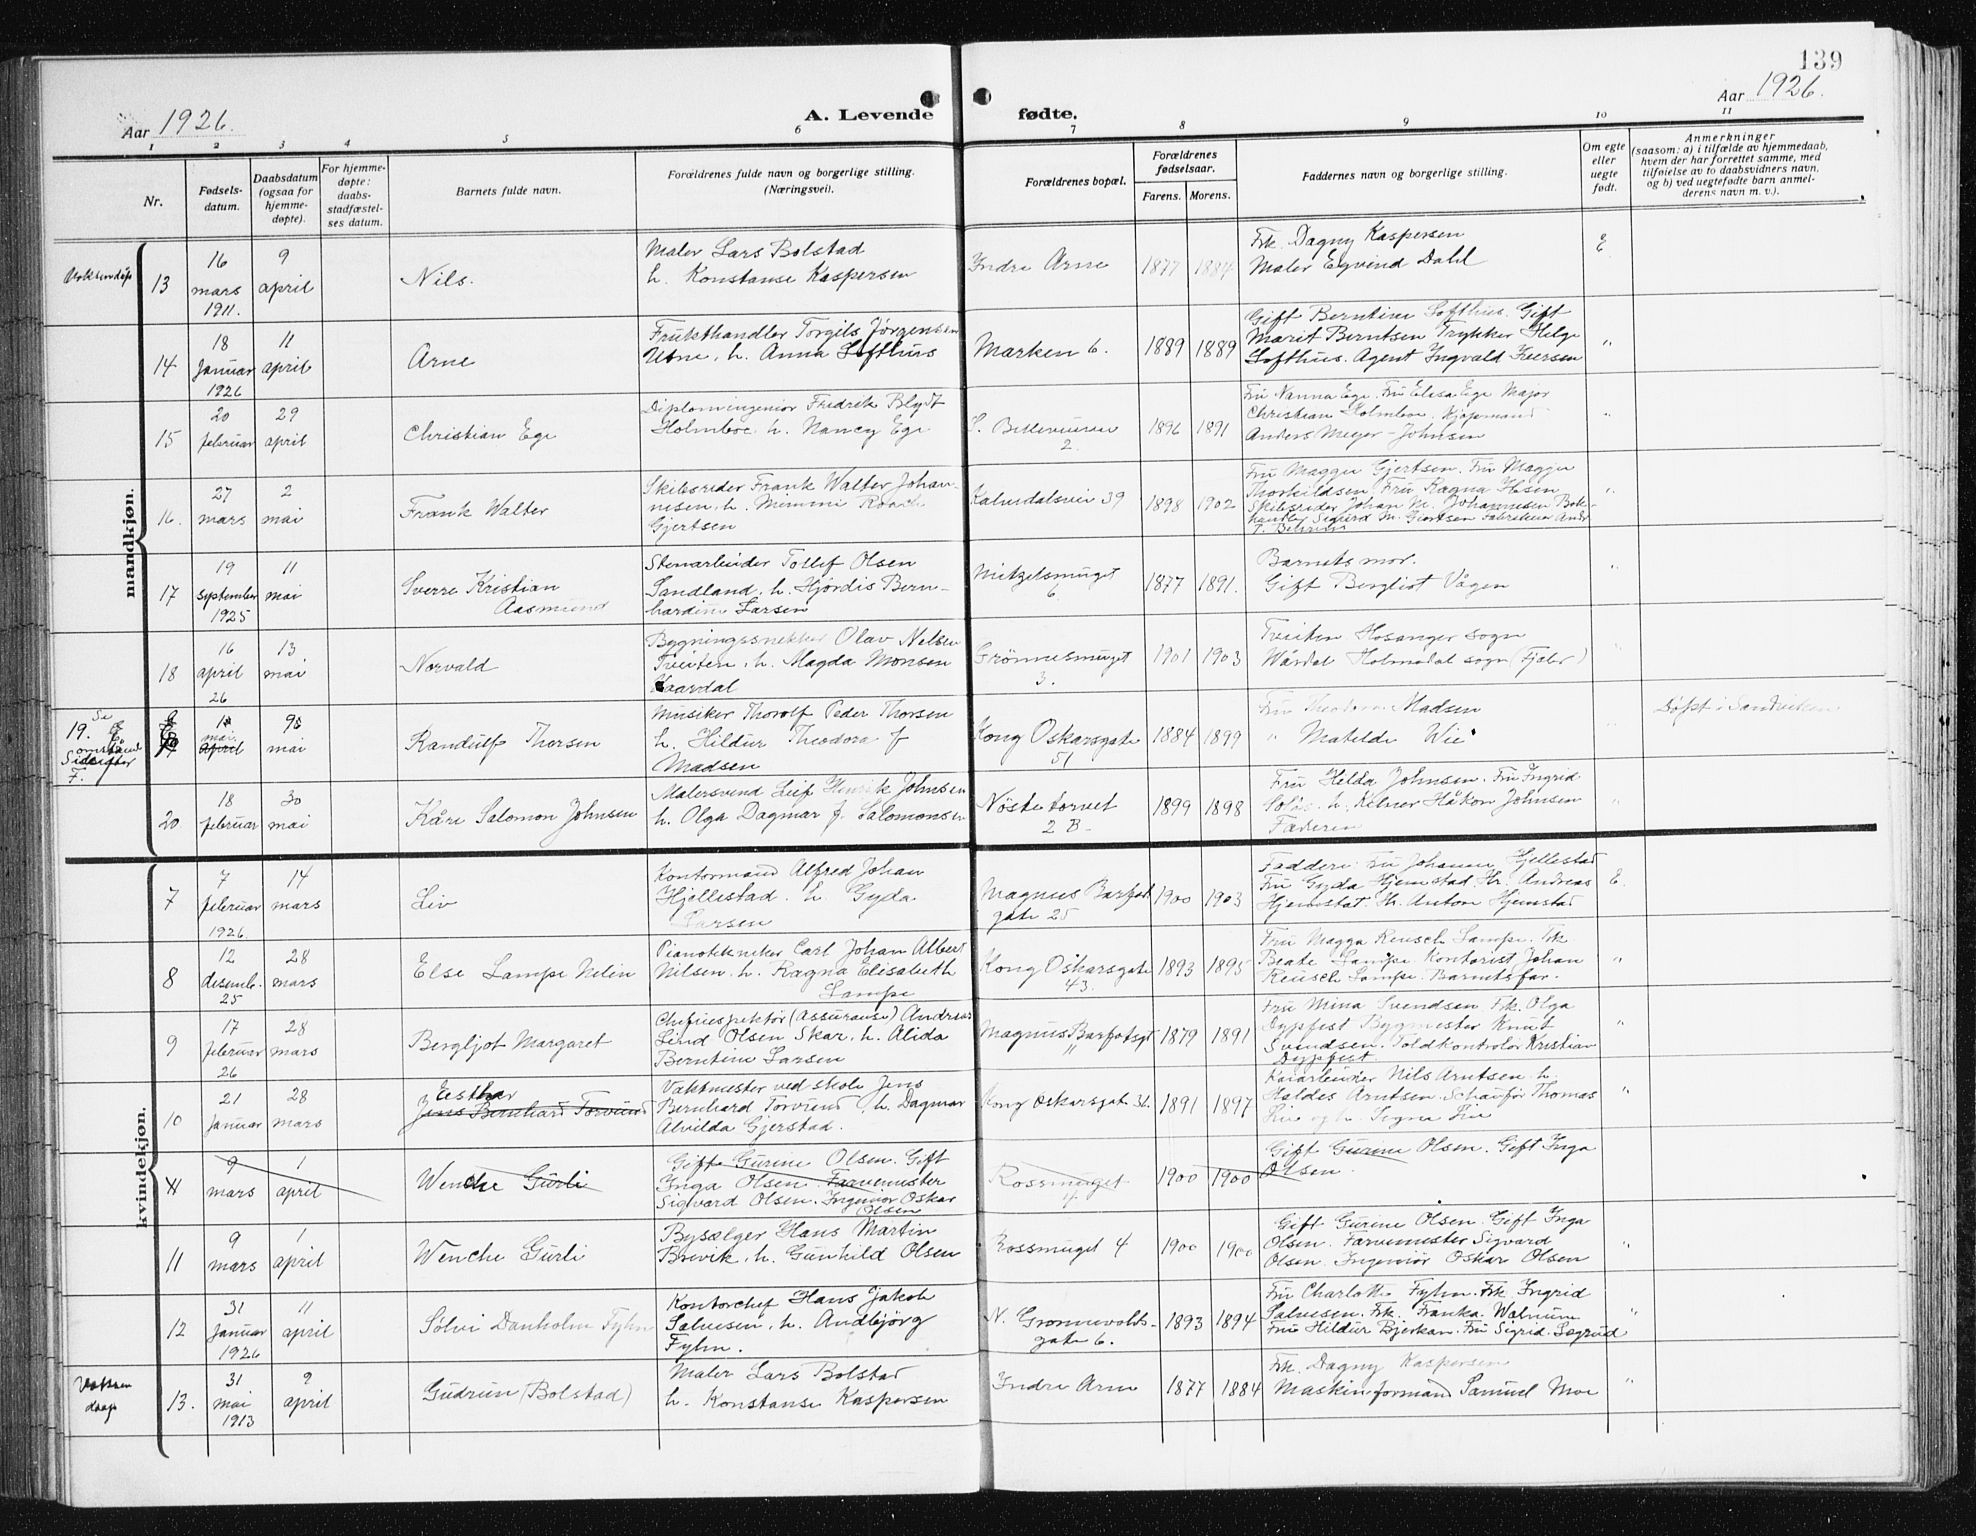 139
Aar 1926.
A. Levende fødte.
Aar 1926.
1 2 3 4 5 6 7 8 9 10 11
Nr.
Fødsels-
datum.
Daabsdatum
(ogsaa for
hjemme-
døpte).
For hjemme-
døpte:
daabs-
stadfæstel-
ses datum.
Barnets fulde navn.
Forældrenes fulde navn og borgerlige stilling.
(Næringsvei).
Forældrenes bopæl.
Forældrenes
fødselsaar.
Farens. Morens.
Faddernes navn og borgerlige stilling.
Om egte
eller
uegte
født.
Anmerkninger
(saasom: a) i tilfælde av hjemmedaab,
hvem der har forrettet samme, med
tilføielse av to daabsvidners navn,
og b) ved uegtefødte barn anmel-
derens navn m. v.).
mandkjøn.
13
16
mars
1911.
9
april
Nils.
Maler Lars Bolstad
h. Konstanse Kaspersen
Indre Arne
1877 1884
Frk. Dagny Kaspersen
Maler Eyvind Dahl
E
14
18
Januar
1926
11
april
Arne
Frukthandler Torgils Jørgensen
Utne, h. Anna Lofthus
Marken 6.
1889 1889
Gift Berntine Lofthus. Gift
Marit Berntsen Trykker Helge
Lofthus. Agent Ingvald Iversen
"
15
20
februar
29
april
Christian Ege
Diplomingeniør Fredrik Blydt
Holmboe. h. Nancy Ege
2.
1896 1891
Fru Nanna Ege. Fru Elisa Ege Major
Christian Holmboe. Kjøpmand
Anders Meyer-Johnsen
"
16.
27
mars
2
mai
Frank Walter
Skibsreder Frank Walter Johan-
nesen, h. Mimmi
Gjertsen
Kalvedalsvei 39
1898 1902
Fru Maggie Gjertsen. Fru Maggie
Thorkildsen. Fru Ragna
Skibsreder Johan M. Johannesen
"
17
19
september
1925
11
mai
Sverre Kristian
Aasmund
Stenarbeider Tollef Olsen
Sandland, h. Hjørdis Bern-
hardine Larsen
Nitzelsmuget
6.
1877 1891.
Barnets mor.
Gift Bergliot Vågen
"
18
16
april
26
13
mai
Norvald
Bygningssnekker Olav Nelsen
Tveiten, h. Magda Monsen
Grønnesmuget
3.
1901 1903
Tveiten Hosanger sogn
Wårdal Holmedal sogn (Fjaler)
"
19.
mai.
april
mai
Randulf Thorsen
Musiker Thorolf Peder Thorsen
h. Hildur Theodora f
Madsen
Kong Oskarsgate
51
1884 1899
Fru Theodora Madsen
" Matilde Wie
Døpt i Sandviken
20
18
februar
30
mai
Kåre Salomon Johnsen
Malersvend Leif Henrik Johnsen
h. Olga Dagmar f. Salomonsen
Nøstetorvet
2 B.
1899 1898
Fru Helda Johnsen. Fru Ingrid
Kelner Håkon Johnsen
Faderen
"
kvindekjøn.
7
7
februar
1926.
14
mars
Liv
Kontormand Alfred Johan
Hjellestad. h. Gyda
Larsen
Magnus Barfot
gate 25
1900 1903
Faddere: Fru Johanne Hjellestad
Fru Gyda Hjemstad. Hr. Andreas
Hjemstad Hr. Anton Hjemstad
E.
8
12
desemb.
25
28
mars
Else Lampe Nilsen
Pianotekniker Carl Johan Albert
Nilsen. h. Ragna Elisabeth
Lampe
Kong Oskarsgate
43.
1893 1895
Fru Magga Reusch Lampe. Frk
Beate Lampe Kontorist Johan
Reusch Lampe. Barnets far.
"
9
17
februar
26
28
mars
Bergljot Margaret
Chefinspektør (Assuranse) Andreas
Lind Olsen Skar, h. Alida
Berntine Larsen
Magnus Barfotsgt
1879 1891
Fru Mina Svendsen Frk. Olga
Dypfest Bygmester Knut
Svendsen. Toldkontrolør Kristian
Dypfest.
"
10
21
Januar
28
mars
Esther
Jens Bernhard Torvund
Vaktmester ved skole Jens
Bernhard Torvund, h. Dagmar
Alvilda Gjerstad.
Kong Oskarsgate 36
1891 1897
Kaiarbeider Nils Arntsen. h.
Haldis Arntsen. Schaufør Thomas
"
11
9
mars
1
april
Wenche Gurli
Gift Gurine Olsen. Gift
Inga Olsen. Farvemester
Sigvard Olsen. Ingeniør Oskar
Olsen
Rossmuget
4
1900 1900
Gift Gurine Olsen. Gift Inga
Olsen.
11
9
mars
1
april
Wenche Gurli
Bysælger Hans Martin
Brevik, h. Gunhild Olsen
Rossmuget 4
1900 1900
Gift Gurine Olsen. Gift Inga
Olsen. Farvemester Sigvard
Olsen. Ingeniør Oskar Olsen
"
12
31
Januar
1926
11
april
Sølvi Danholm Fyhn
Kontorchef Hans Jakob
Salvesen, h. Andbjørg
Fyhn.
N. Grønnevolds-
gate 6.
1893 1894
Fru Charlotte Fyhn. Frk. Ingrid
Salvesen. Frk. Franka Walnum
Fru Hildur Bjerkan. Fru Sigrid
"
13.
31
mai
1913
9
april
Gudrun (Bolstad)
Maler Lars Bolstad
h. Konstanse Kaspersen
Indre Arne
1877 1884
Frk. Dagny Kaspersen
Maskinformand Samuel Moe
"